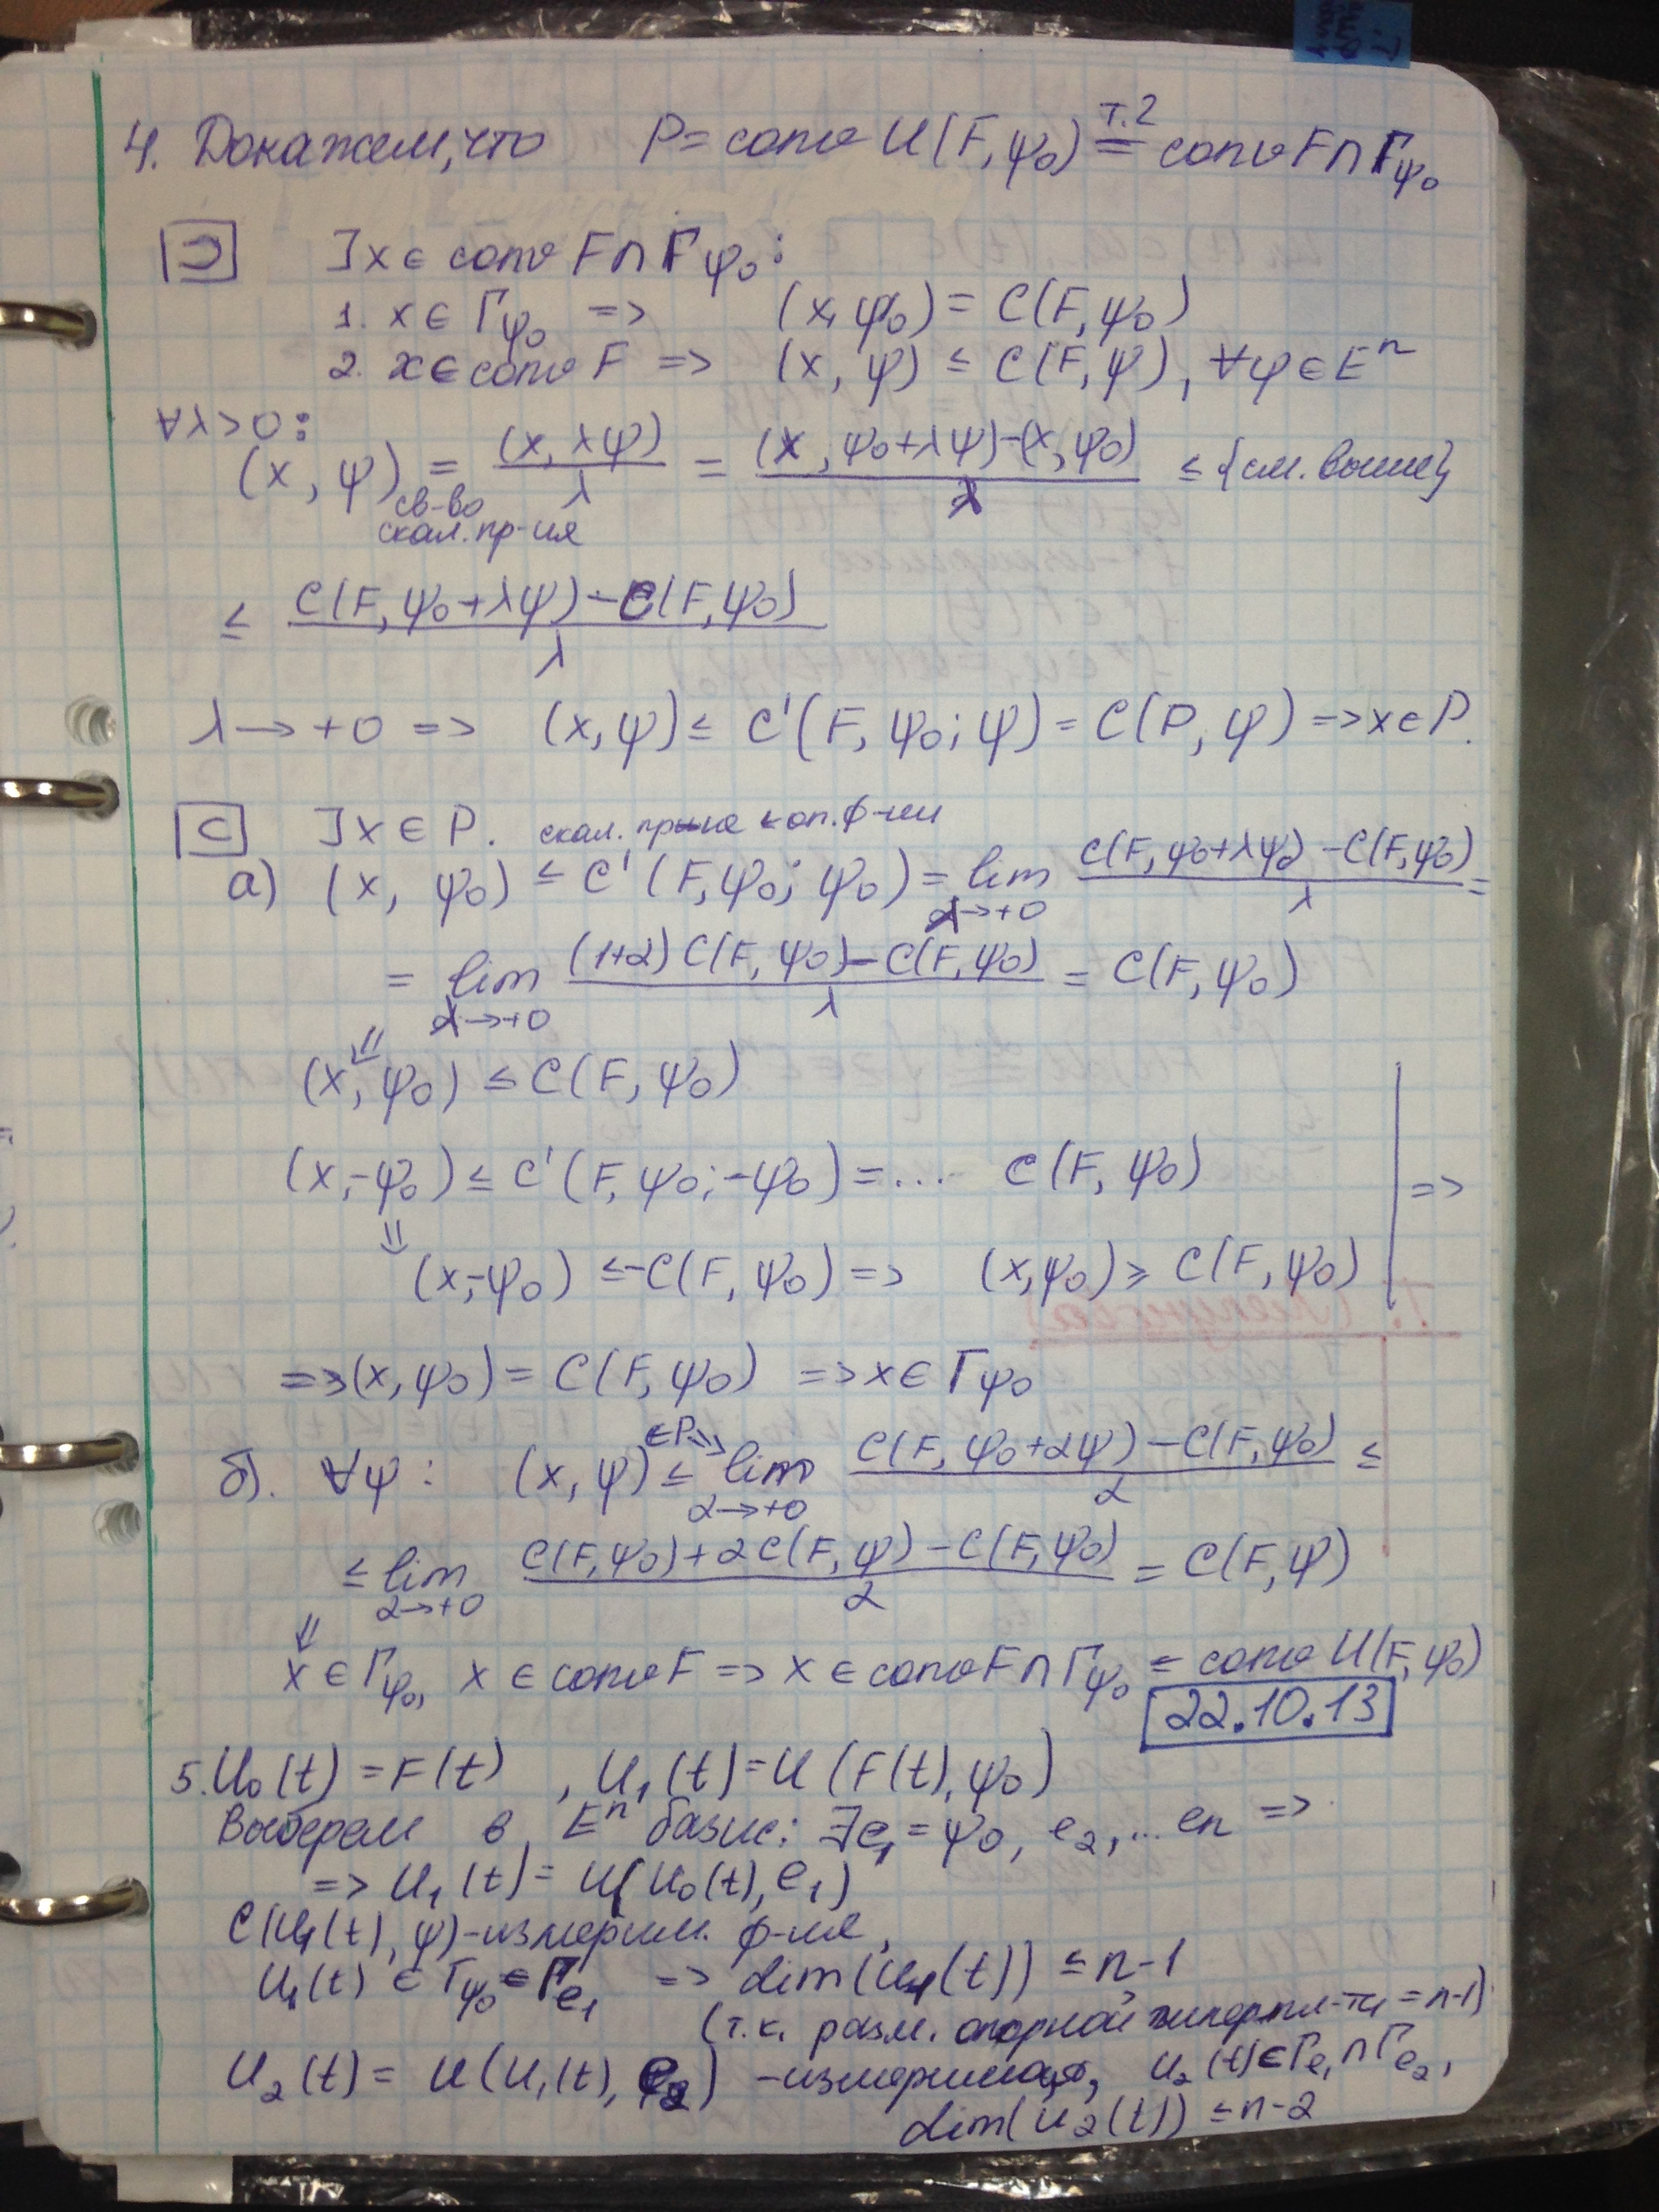 4. Докажем, что P = conv U(F, ψ₀) =(т.2) conv F ∩ Γψ₀
⊃ ∃x ∈ conv F ∩ Γψ₀:
1. x ∈ Γψ₀ => (x, ψ₀) = C(F, ψ₀)
2. x ∈ conv F => (x, ψ) ≤ C(F, ψ), ∀ψ ∈ Eⁿ
∀λ>0:
(x, ψ) = (x, λψ)/λ = ((x, ψ₀+λψ)-(x, ψ₀))/λ ≤ {см. выше}
св-во
скал. пр-ия
≤ (C(F, ψ₀+λψ) - C(F, ψ₀))/λ
λ → +0 => (x, ψ) ≤ C'(F, ψ₀; ψ) = C(P, ψ) => x ∈ P.
⊂ ∃x ∈ P. скал. пр-ие ≤ оп. ф-ии
а) (x, ψ₀) ≤ C'(F, ψ₀; ψ₀) = lim λ→+0 (C(F, ψ₀+λψ₀) - C(F, ψ₀))/λ =
= lim λ→+0 ((1+λ) C(F, ψ₀) - C(F, ψ₀))/λ = C(F, ψ₀)
⇓
(x, ψ₀) ≤ C(F, ψ₀)
(x, -ψ₀) ≤ C'(F, ψ₀; -ψ₀) = ... C(F, ψ₀) =>
⇓
(x, -ψ₀) ≤ -C(F, ψ₀) => (x, ψ₀) ≥ C(F, ψ₀)
=> (x, ψ₀) = C(F, ψ₀) => x ∈ Γψ₀
∈P
б). ∀ψ: (x, ψ) ≤ lim λ→+0 (C(F, ψ₀+λψ) - C(F, ψ₀))/λ ≤
≤ lim λ→+0 (C(F, ψ₀) + λC(F, ψ) - C(F, ψ₀))/λ = C(F, ψ)
⇓
x ∈ Γψ₀, x ∈ conv F => x ∈ conv F ∩ Γψ₀ = conv U(F, ψ₀)
22.10.13
5. U₀(t) = F(t), U₁(t) = U(F(t), ψ₀)
Выберем в Eⁿ базис: ∃e₁ = ψ₀, e₂, ... eₙ =>
=> U₁(t) = U(U₀(t), e₁)
C(U₁(t), ψ) - измерим. ф-ия,
U₁(t) ∈ Γψ₀ = Γe₁ => dim(U₁(t)) ≤ n-1
(т.к. разм. опорной гиперпл-ти = n-1)
U₂(t) = U(U₁(t), e₂) - измеримая, U₂(t) ∈ Γe₁ ∩ Γe₂,
dim(U₂(t)) ≤ n-2